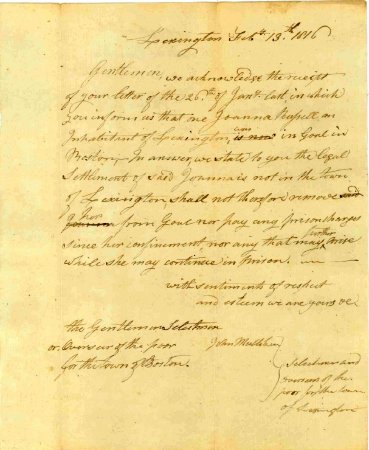 Lexington Feb.y 13.th 1816
Gentlemen, we acknowledge the receipt
of your letter of the 26.th of Jan.y last in which
you inform us that one Joanna Russell an
was
Inhabitant of Lexington, is now in Goal in
Boston,- In answer, we state to you the legal
Settlement of said Joanna is not in the town
of Lexington, shall not therefore remove said
her
from Goal nor pay any prison charges
further
since her confinement, nor any that may arise
while she may continue in prison.
with sentiments of respect
and esteem we are yours &c
the Gentlemen Selectmen
or Overseer of the poor
for the town of Boston.
John Mulliken
Selectmen and
overseers of the
poor for the town
of Lexington